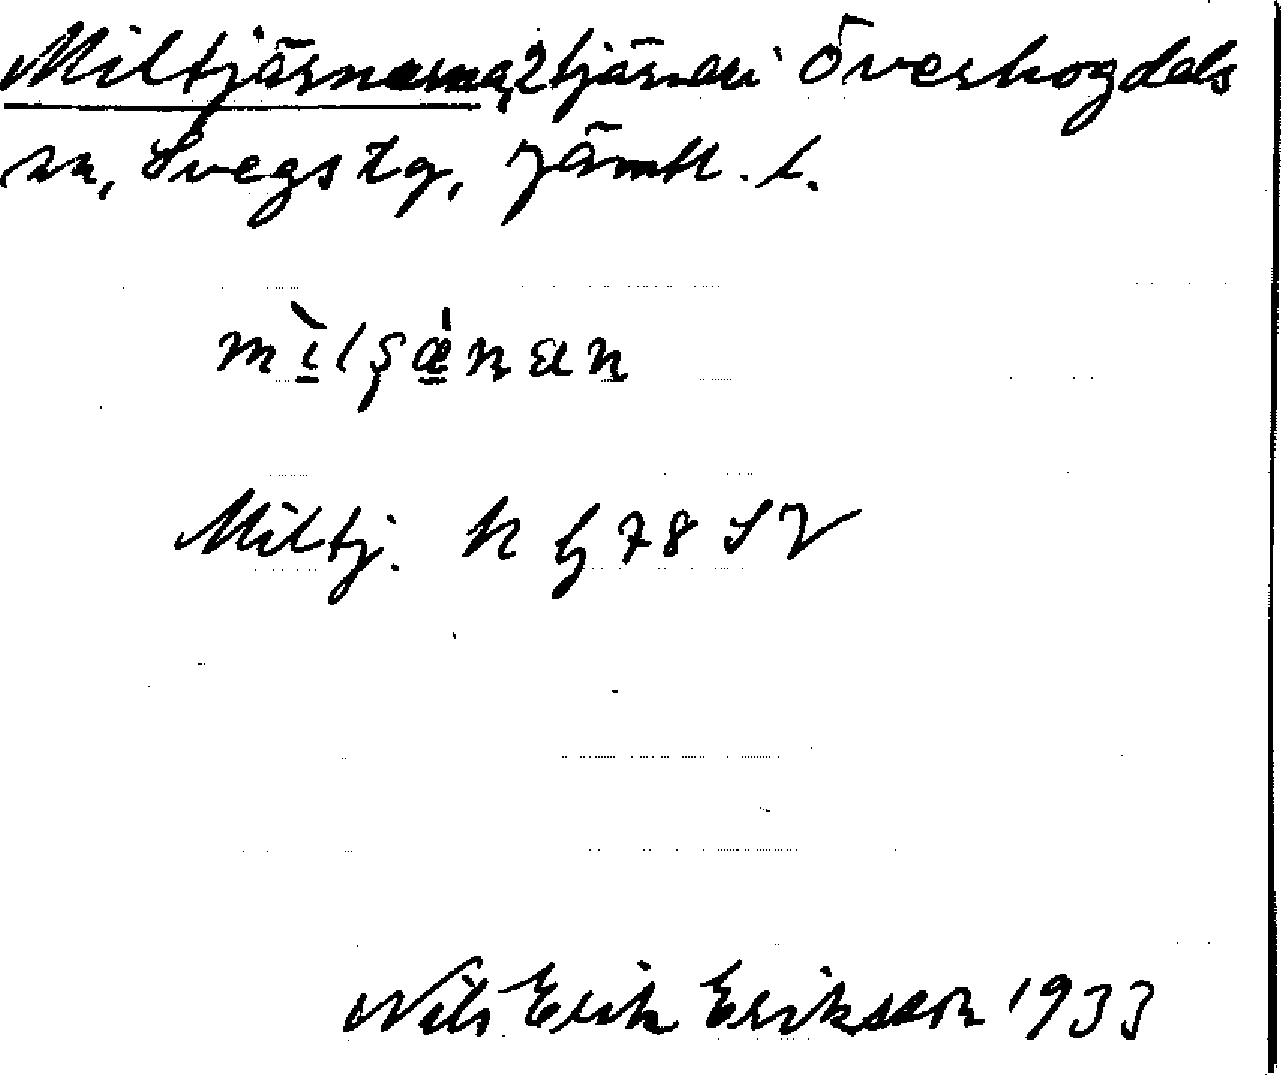 Miltjärnarna, 2 tjärnar i Överhogdals
sn, Svegs tg, Jämtl. l.
Miltj. K h 78 SV
Nils Erik Eriksson 1933